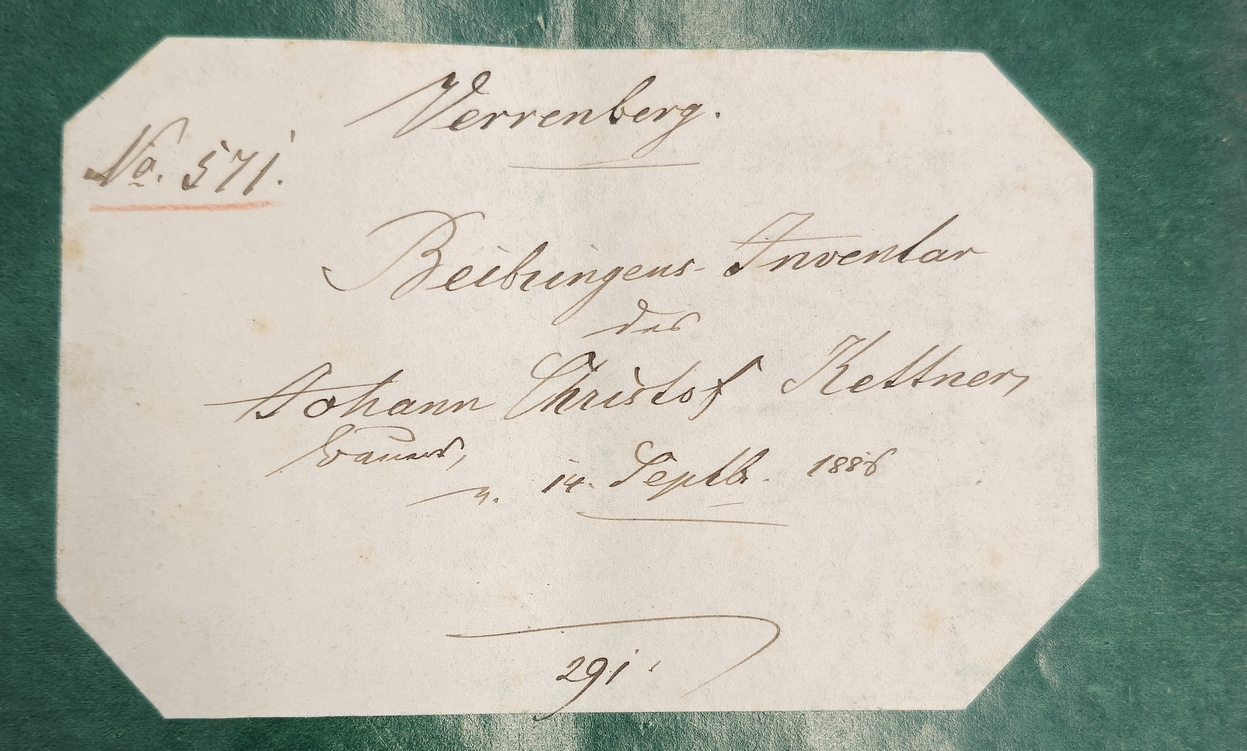 Verrenberg.
No. 571.
Beibringens-Inventar
des
Johann Christof Kettner,
Bauers,
v. 14. Septb. 1886
291.